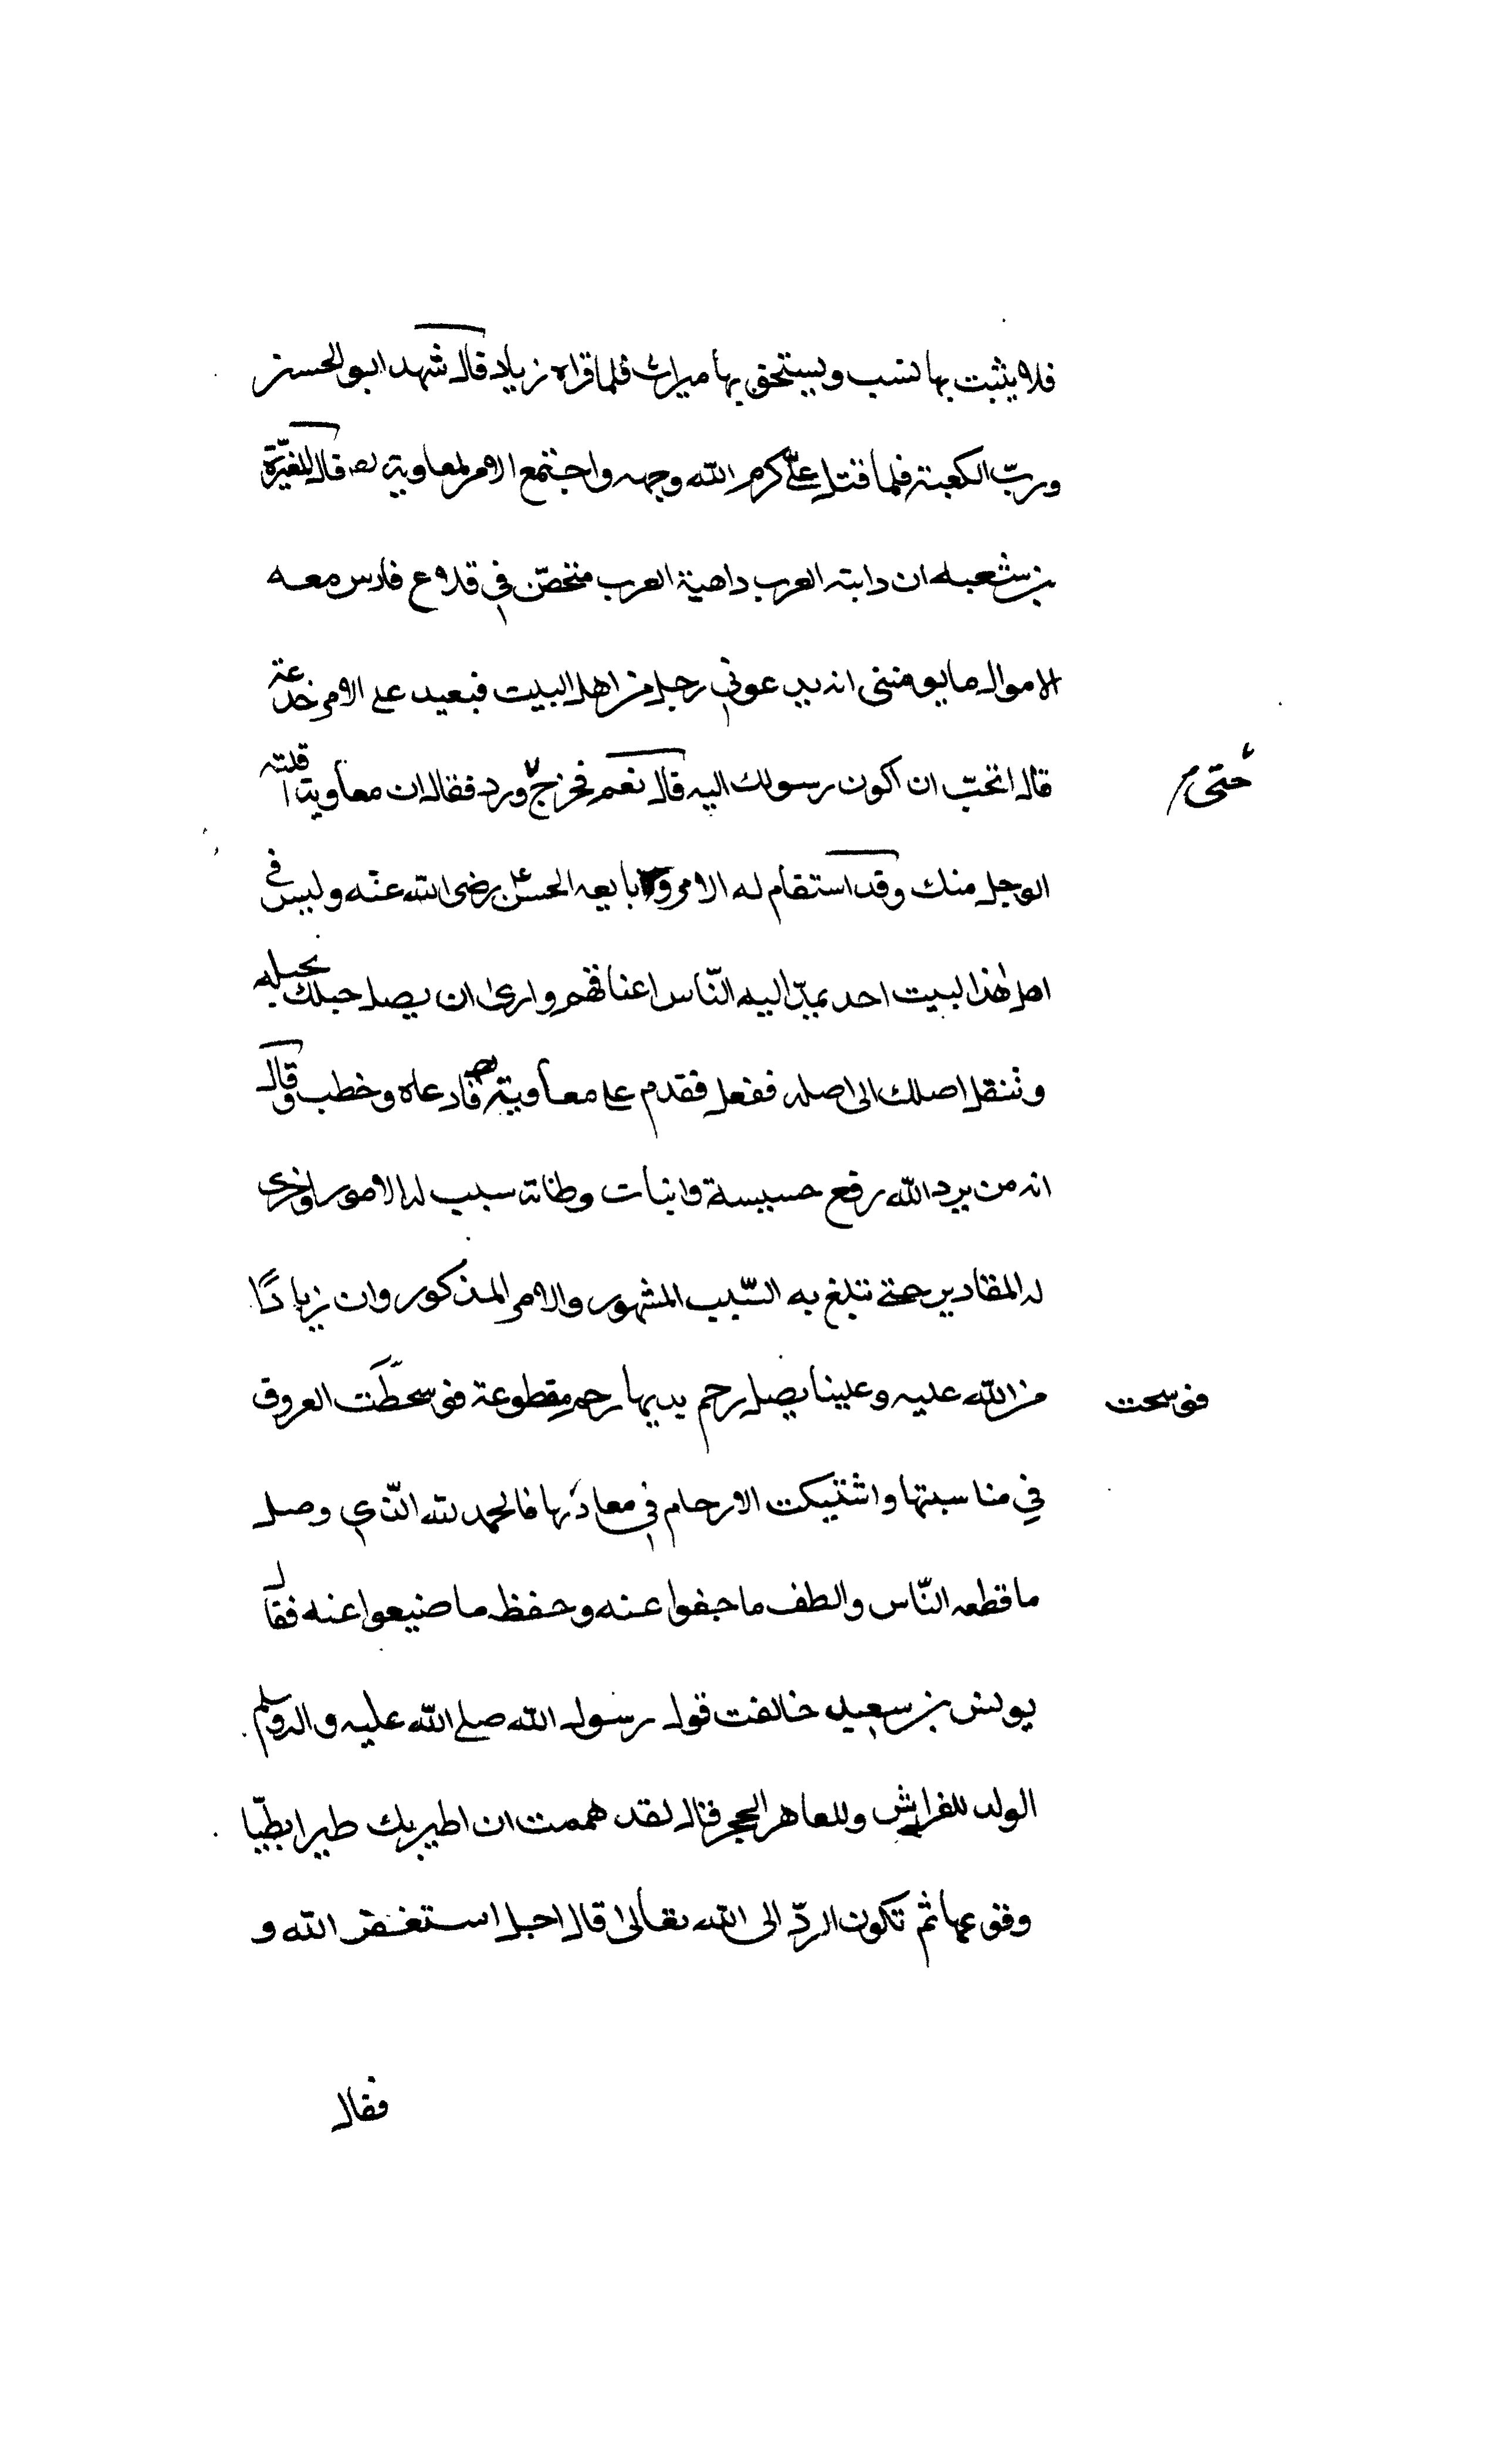 فلا يثبت بها نسب ويستحق بها ميراث فلما قراه زياد قال شهد ابو الحسن
وربّ الكعبة فلما قتل علىّ كرم الله وجهه واجتمع الامر لمعاوية قال للمغيّرة
بن شعبه ان دابته العرب داهية العرب متحصّن في قلاع فارس معه
الاموال ما يومننى انه يدعوني رجل من اهل البيت فبعيد على الامر خدعة
قال اتحبّ ان اكون رسولك اليه قال نعم فخرج ورد فقال ان معاوية اقلته
حتى
الوجل منك وقد استقام له الامر و بايعه الحسن رضى الله عنه وليس في
اهل هذا البيت احد يميل اليه النّاس اعناقهم وارى ان يصل حبلك بحبله
وننقل اصلك الى اصله ففعل فقدم على معاوية فادعاه وخطب وقال
انه من يرد الله رفع حسيسة واثبات وطاته سبب له الامور واخرى
له المقادير حتى تبلغ به السّبب المشهور والامر المذكور وان زيادًا
من الله عليه وعلينا يصل رحم يديها رحم مقطوعة فتوسحطّت العروق
فتوسحت
في مناسبتها واشتبكت الارحام في معادنها فالحمد لله الّذي وصل
ما قطعه النّاس والطف ما جفوا عنه وحفظ ما ضيعوا عنه فقال
يونس بن سعيد خالفت قول رسول الله صلى الله عليه واله وسلم
الولد للفراش وللعاهر الحجر فقال لقد هممت ان اطير بك طيرا بطيّا
وقوعها ثم تكون الردّ الى الله تعالى قال اجل استغفر الله و
فقال